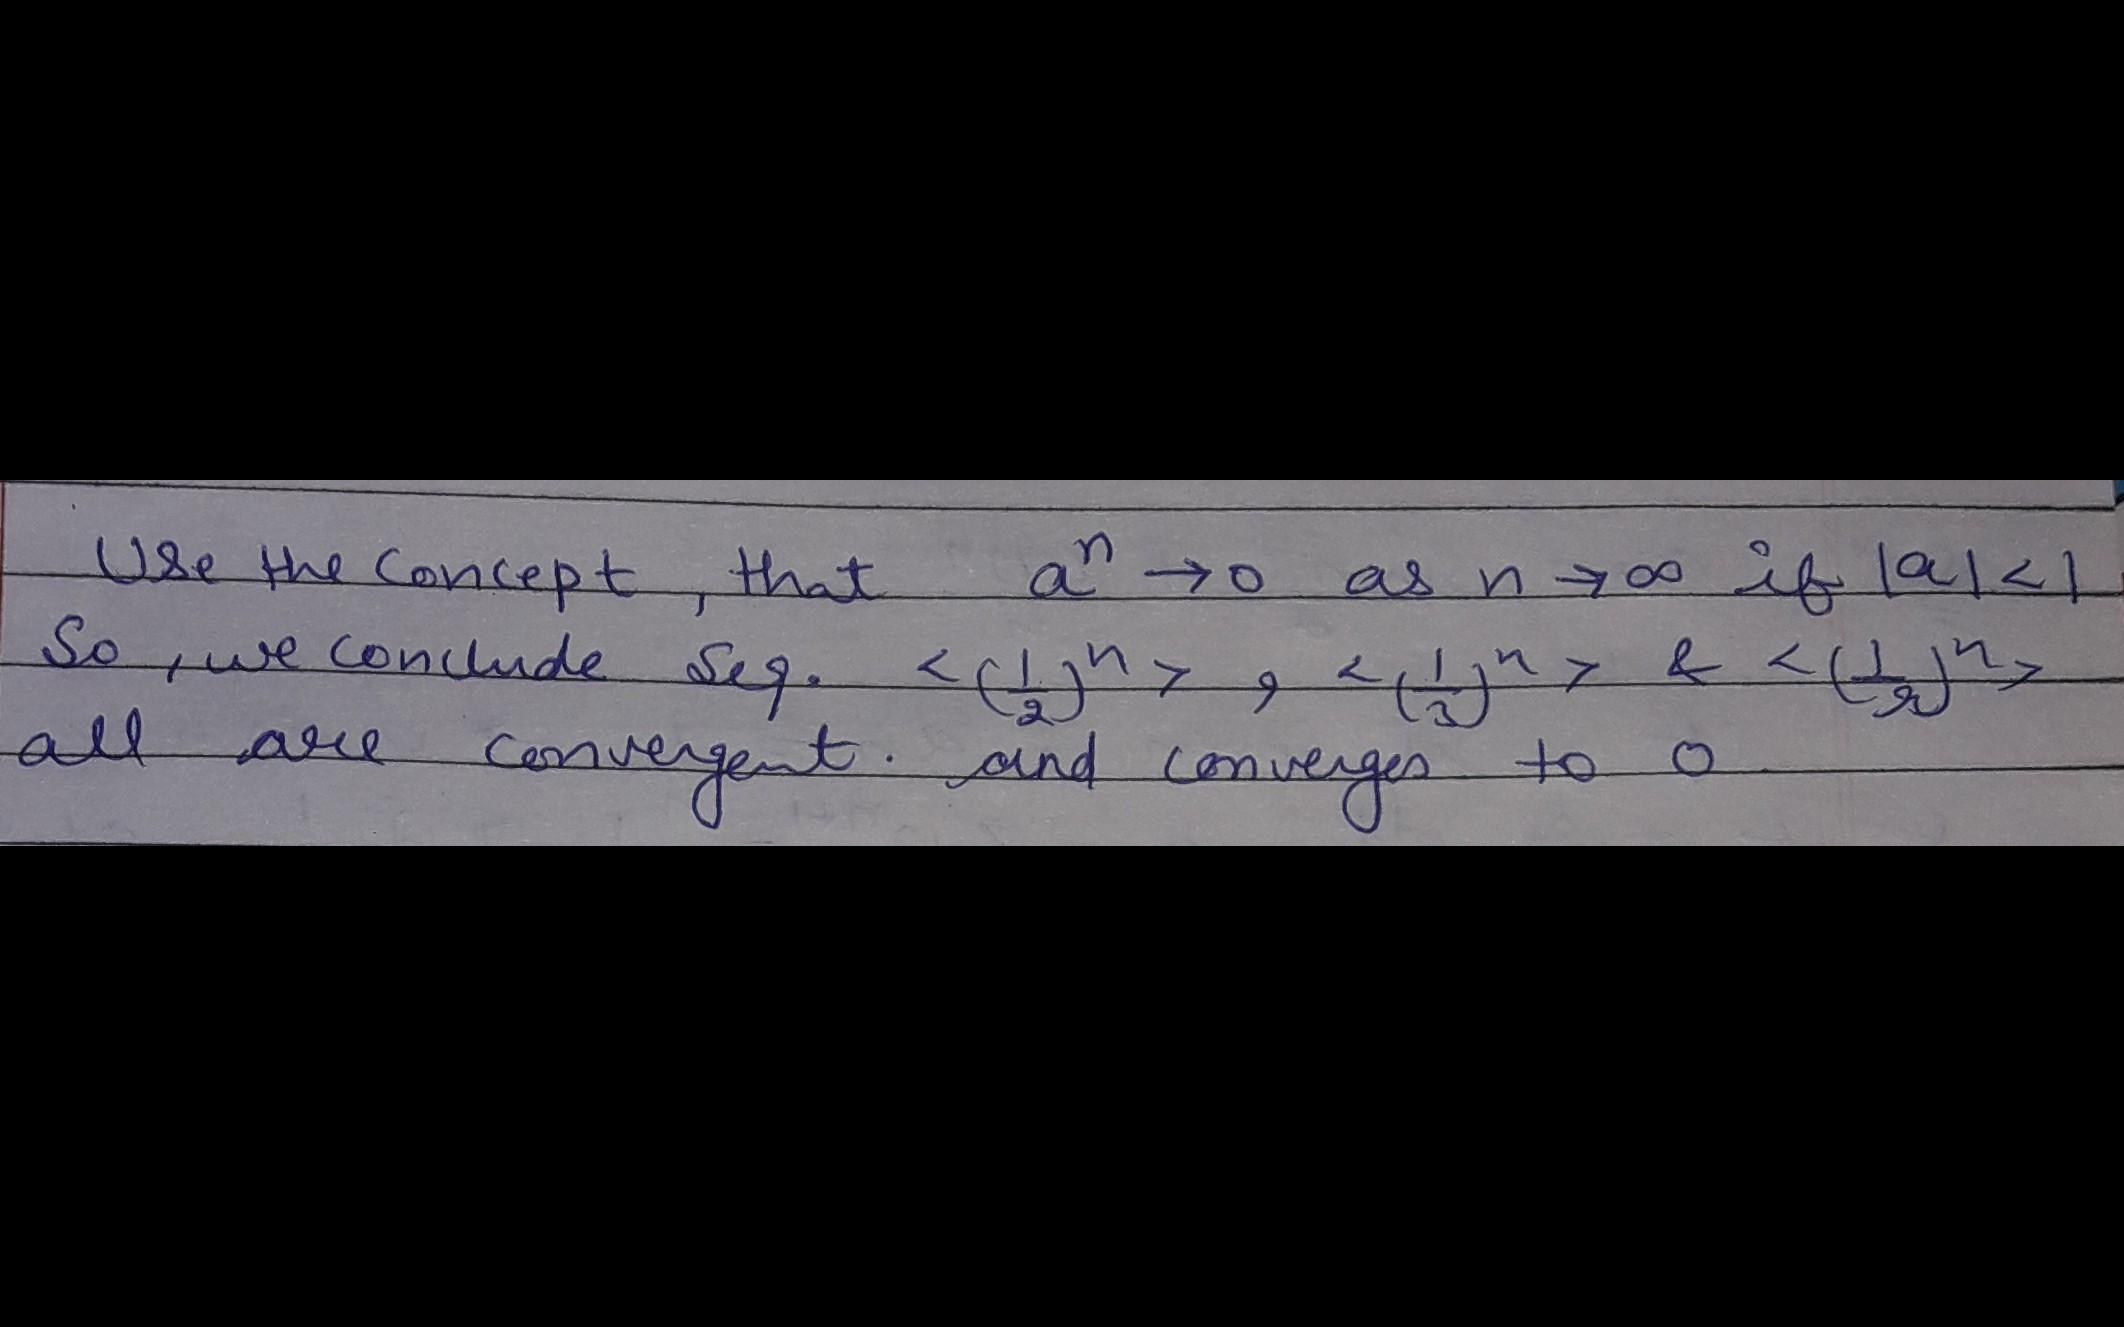 Use the concept, that aⁿ → 0 as n → ∞ if |a| < 1
So, we conclude Seq. <(1/2)ⁿ> , <(1/3)ⁿ> & <(1/r)ⁿ>
all are convergent. and converges to 0